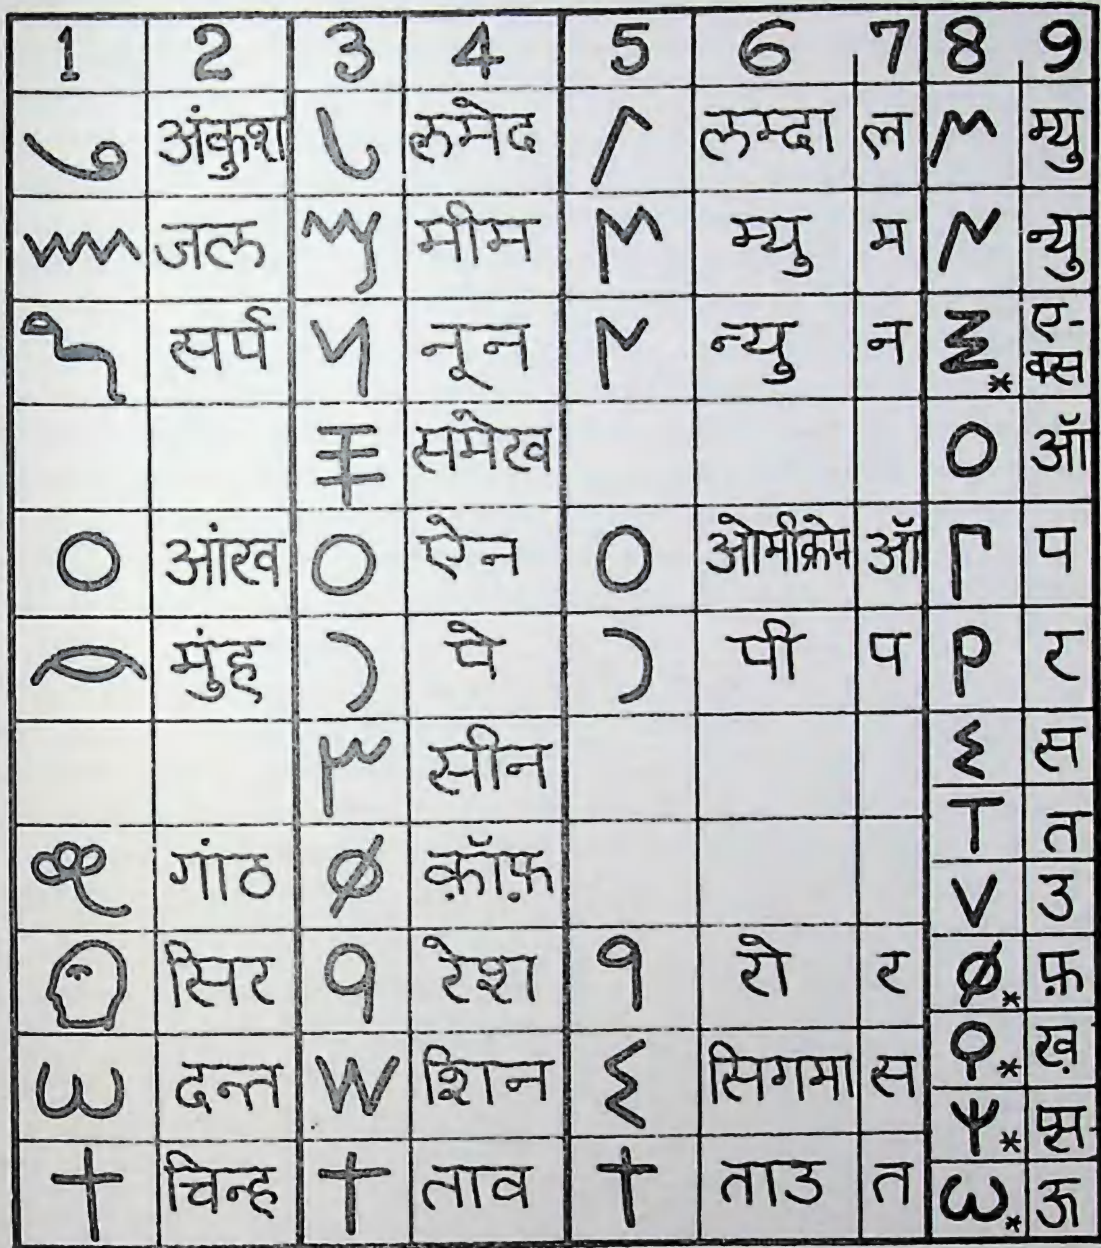 1 2 3 4 5 6 7 8 9
अंकुश लमेद लम्दा ल म्यु
जल मीम म्यु म न्यु
सर्प नून न्यु न ए-
क्स
समेख ऑ
आंख ऐन ओमीक्रोन ऑ प
मुंह पे पी प र
सीन स
त
गांठ क़ॉफ़ उ
सिर रेश रो र फ़
ख़
दन्त शिन सिगमा स
प्स
चिन्ह ताव ताउ त ऊ